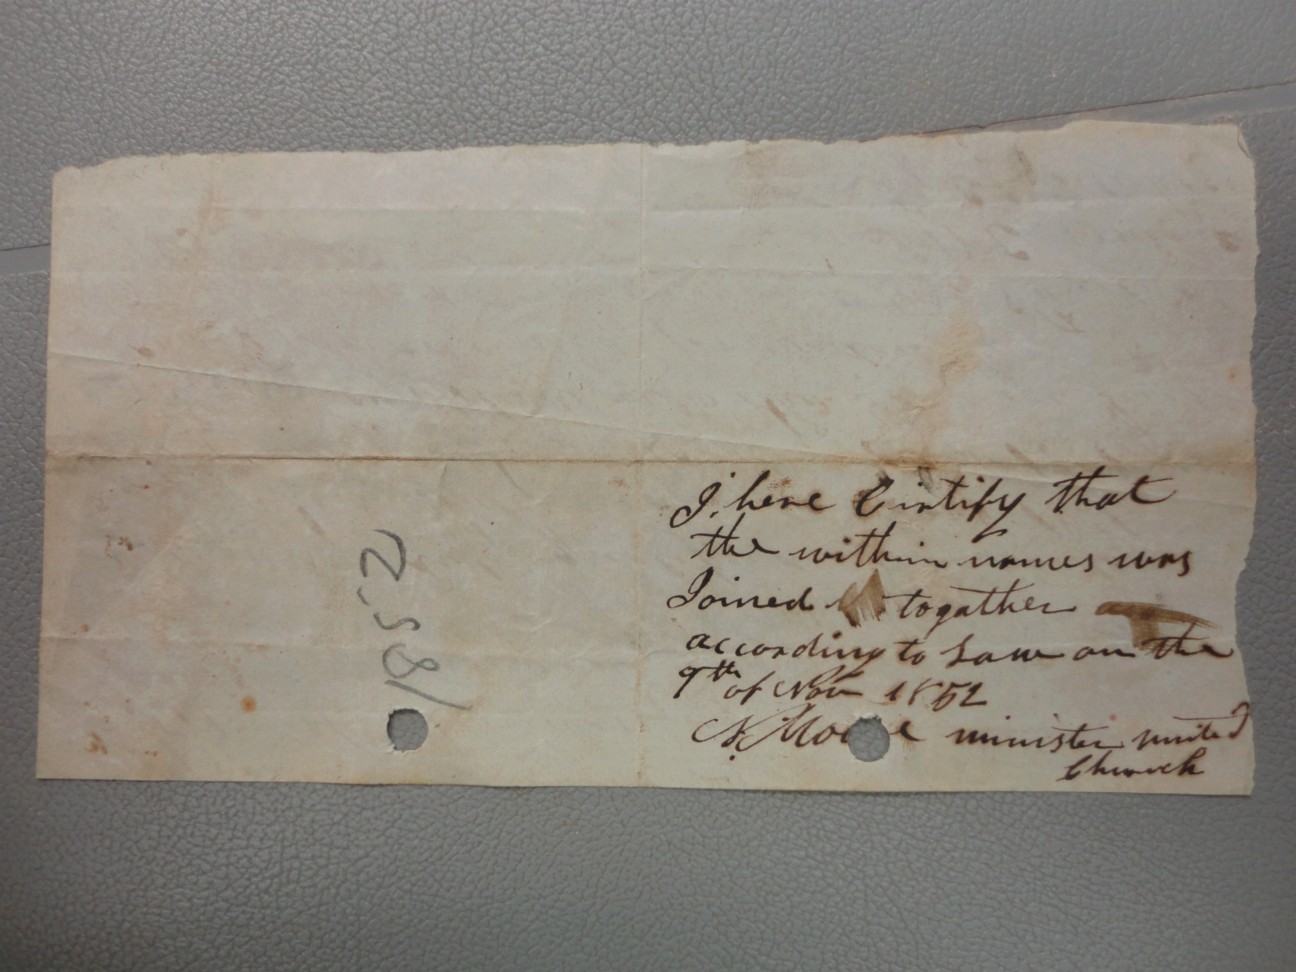 I here Cirtify that
the within names was
Joined togather
according to Law on the
9th of Nov 1852
N. Moore minister united
Church
1852